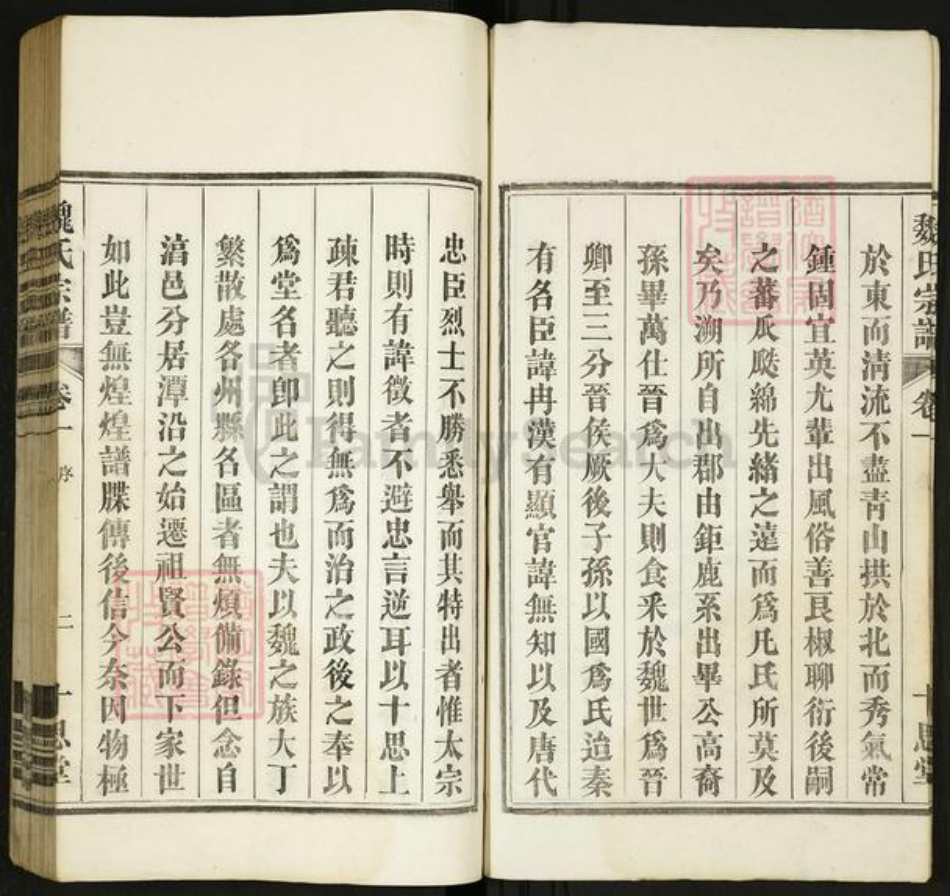 魏氏宗譜 卷一
於東而淸流不盡靑山拱於北而秀氣常
鍾固宜英尤輩出風俗善良椒聊衍後嗣
之蕃瓜瓞綿先緖之遠而爲凡氏所莫及
矣乃溯所自出郡由鉅鹿系出畢公高裔
孫畢萬仕晉爲大夫則食采於魏世爲晉
卿至三分晉侯厥後子孫以國爲氏迨秦
有各臣諱冉漢有顯官諱無知以及唐代
忠臣烈士不勝悉舉而其特出者惟太宗
時則有諱徵者不避忠言逆耳以十思上
疎君聽之則得無爲而治之政後之奉以
爲堂名者卽此之謂也夫以魏之族大丁
繁散處各州縣名區者無煩備錄但念自
滈邑分居潭沿之始遷祖賢公而下家世
如此豈無煌煌譜牒傳後信今奈因物極
魏氏宗譜 卷一 序 二 十思堂
FamilySearch